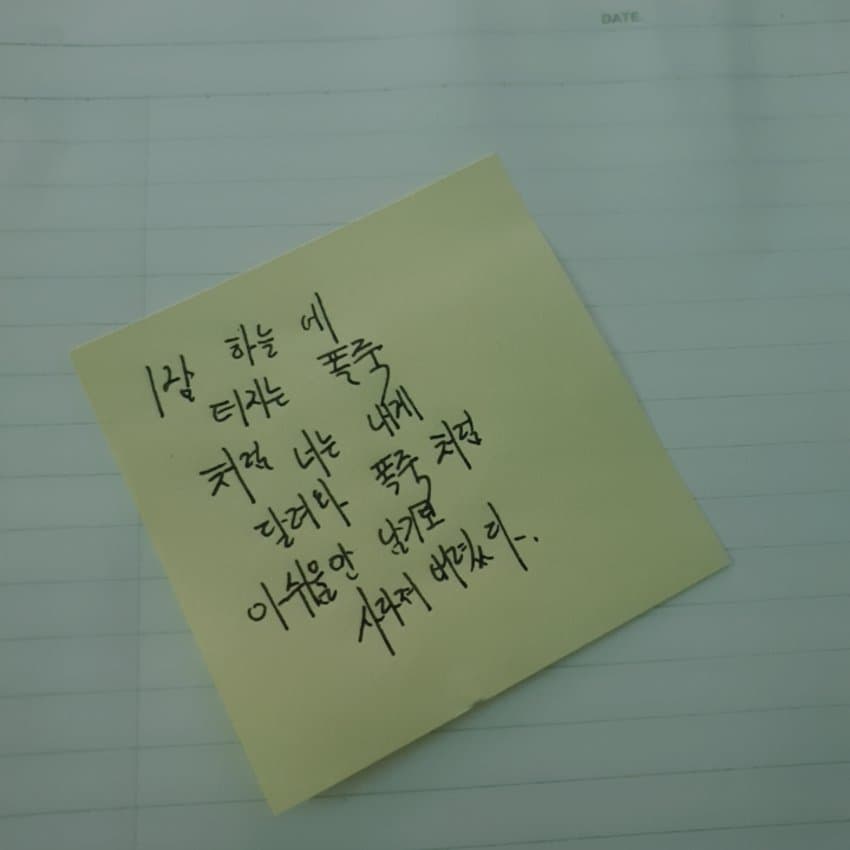 DATE
밤 하늘 에
터지는 폭죽
처럼 너는 내게
달려와 폭죽 처럼
아쉬움만 남기고
사라져 버렸다.